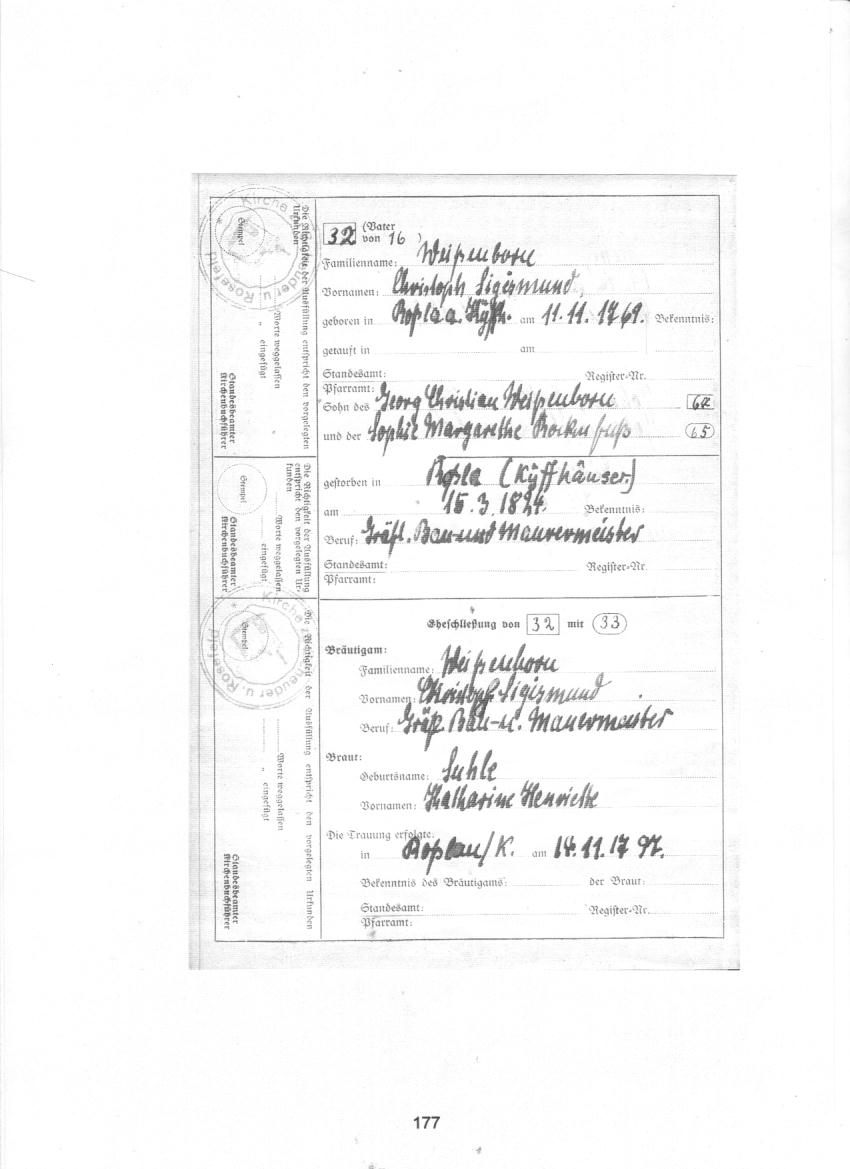 32 (Vater
von 16 )
Familienname: Weißenborn
Vornamen: Christoph Sigismund,
geboren in Roßla a. Kyffh. am 11.11.1769. Bekenntnis:
getauft in am
Standesamt: Register-Nr.
Pfarramt:
Sohn des Georg Christian Weißenborn 64
und der Sophie Margarethe Rockenfuß 65
gestorben in Roßla (Kyffhäuser)
am 15.3.1824. Bekenntnis:
Beruf: Gräfl. Bau- und Maurermeister
Standesamt: Register-Nr.
Pfarramt:
Eheschließung von 32 mit 33
Bräutigam:
Familienname: Weißenborn
Vornamen: Christoph Sigismund
Beruf: Gräfl. Bau- u. Mauermeister
Braut:
Geburtsname: Suhle
Vornamen: Katharine Henriette
Die Trauung erfolgte:
in Roßlau/K. am 14.11.1797.
Bekenntnis des Bräutigams: der Braut:
Standesamt: Register-Nr.
Pfarramt:
Die Richtigkeit der Ausfüllung entspricht den vorgelegten
Urkunden
Worte weggelassen
„ eingefügt
Stempel
Standesbeamter
Kirchenbuchführer
Kirche Reuder u. Rosefeld
Die Richtigkeit der Ausfüllung
entspricht den vorgelegten Ur-
kunden
Worte weggelassen
eingefügt
Stempel
Standesbeamter
Kirchenbuchführer
Die Richtigkeit der Ausfüllung entspricht den vorgelegten Urkunden
Worte weggelassen
„ eingefügt
Stempel
Standesbeamter
Kirchenbuchführer
Kirche Reuder u. Rosefeld
177